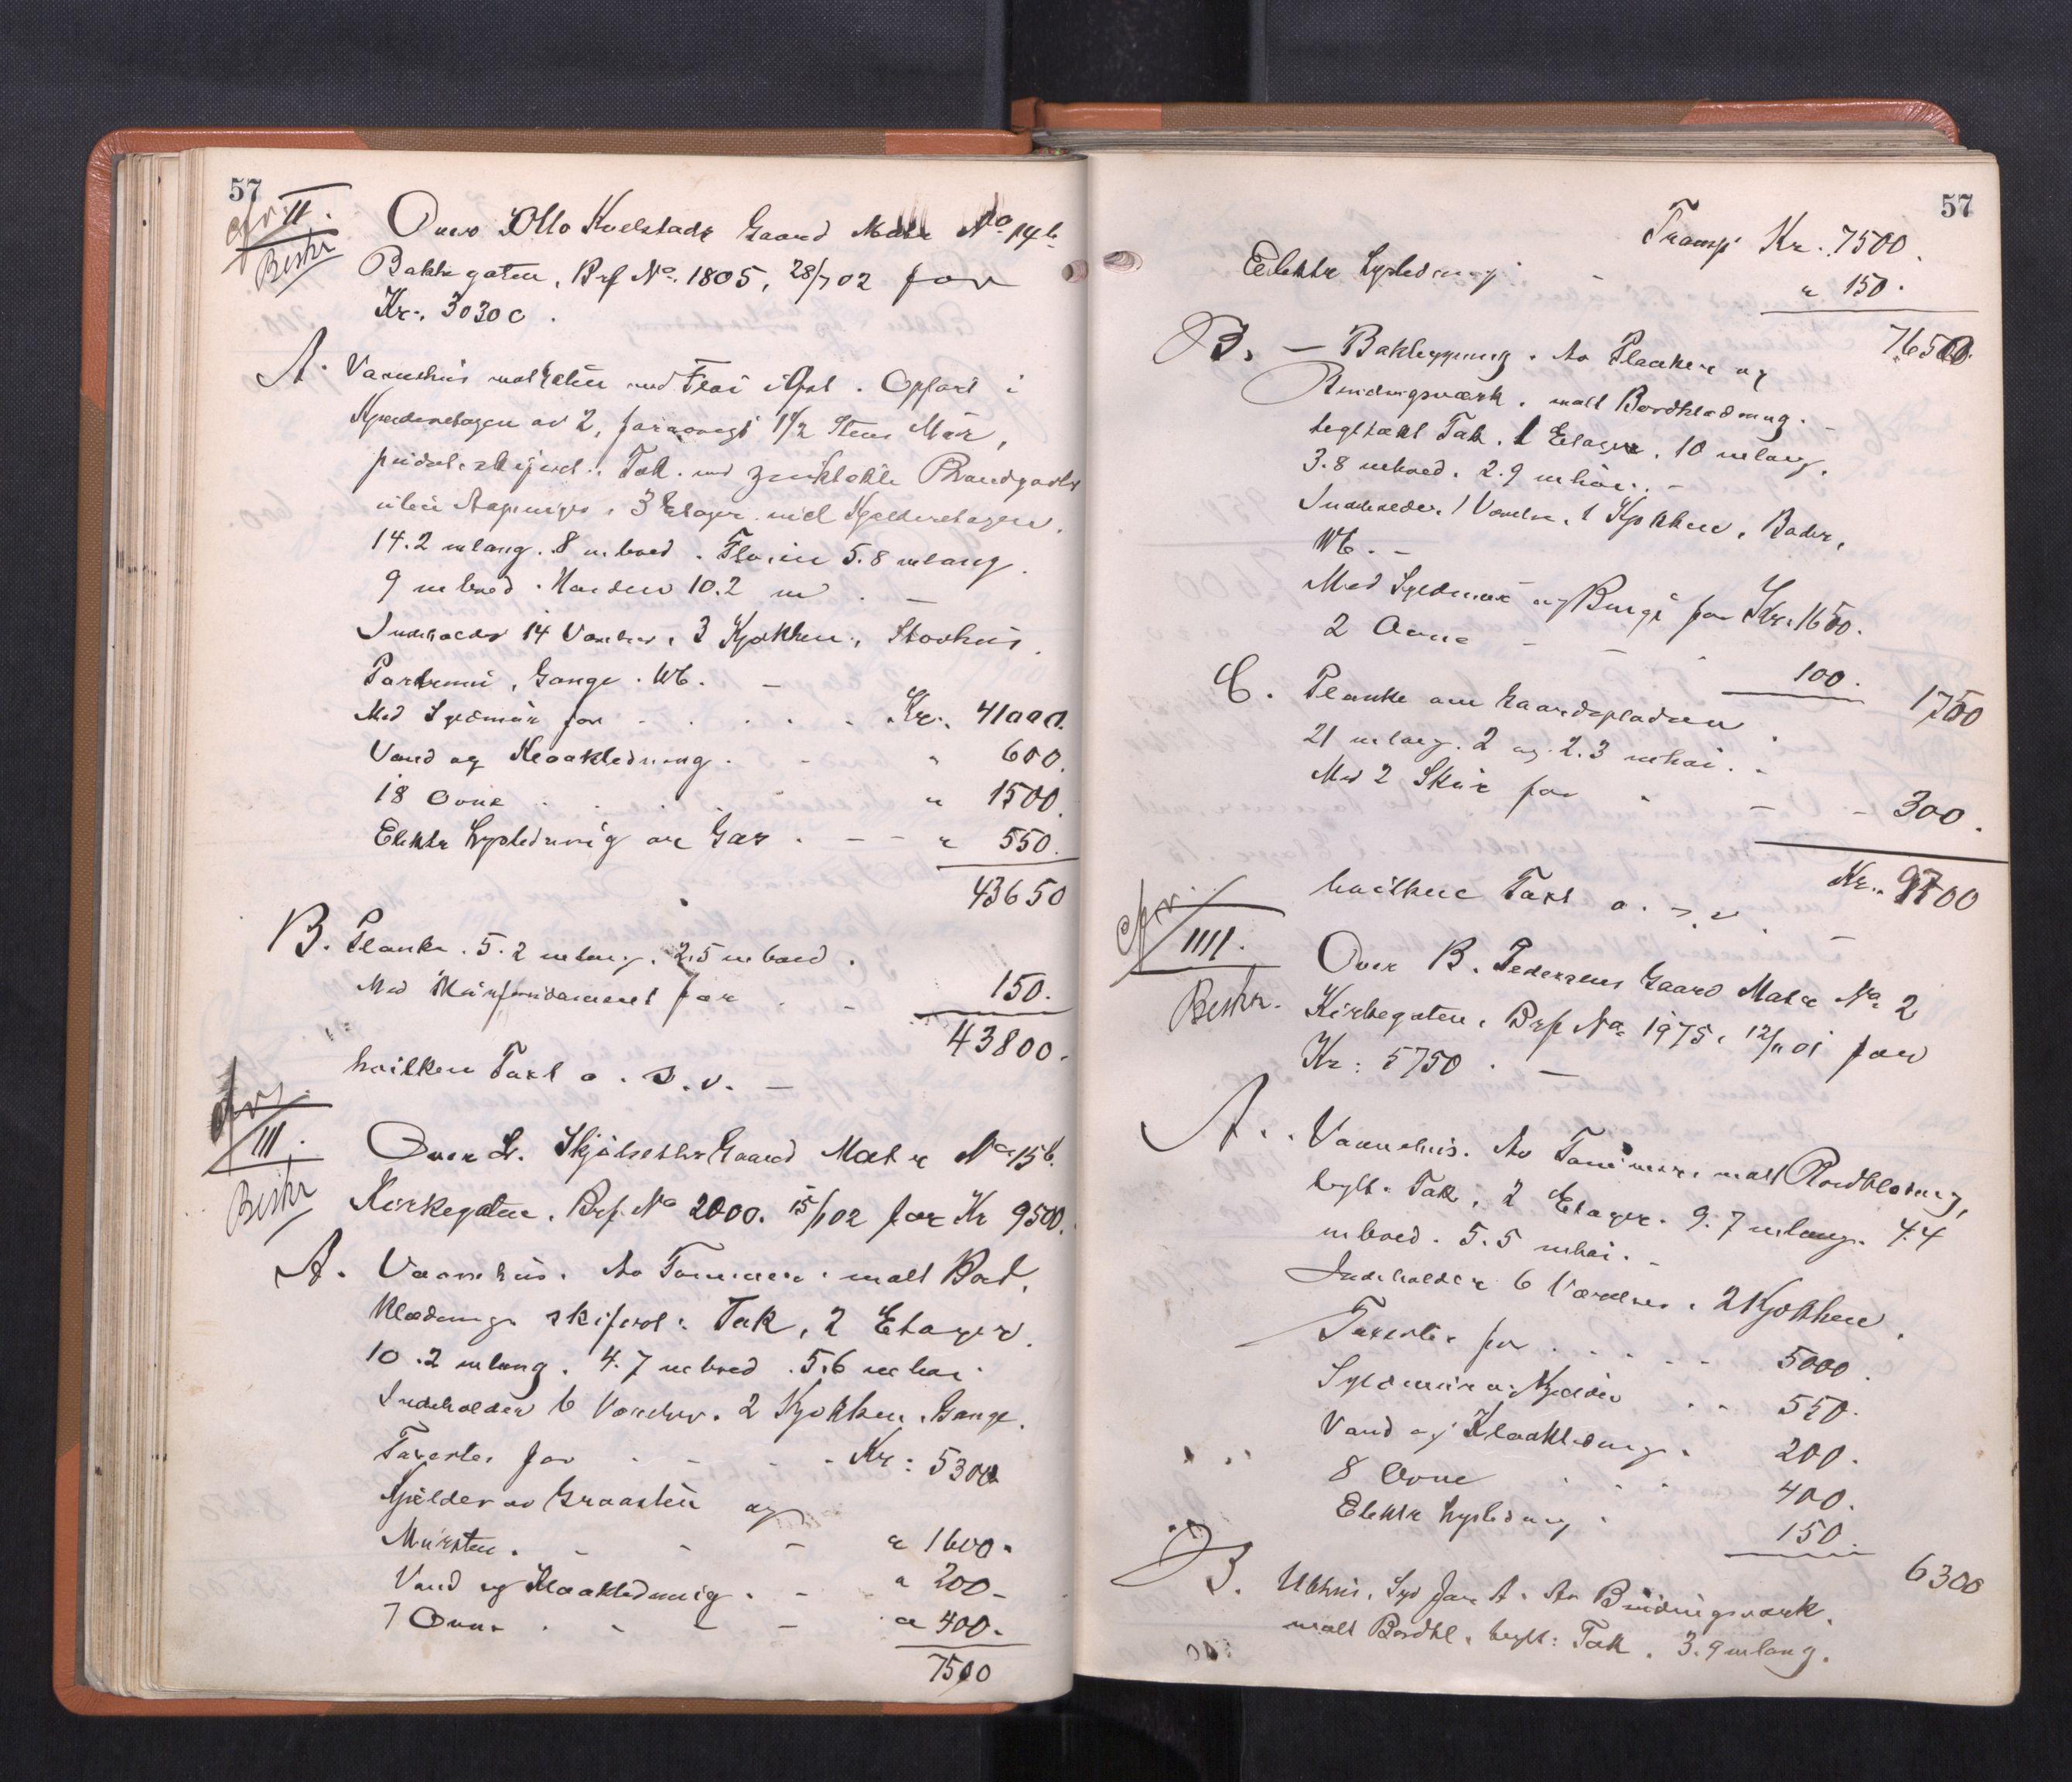 57
cfr. II.
Beskr
Over Otto Kvelstads Gaard Matr No 14b
Bakkegaten, Brf No. 1805, 28/7 02 for
Kr. 30300.
A. Vaanehus mot Gaten med Fløi i Øst. Opført i
Kjælderetagen av 2, forøvrigt 1 1/2 Stens Mur,
pudset, skifert: Tak med zinktækte Brandgavle
uten Aapninger. 3 Etager med Kjælderetagen.
14.2 m lang. 8 m bred. Fløien 5.8 m lang.
9 m bred. Høiden 10.2 m. —
Indeholder 14 Værelser, 3 Kjøkken,
Gange. Wc. —
Med Syldmur for - . . . . Kr. 41000.
Vand og Kloakledning. - " 600.
18 Ovne . . . . " 1500.
Elektr Lysledning og Gas. — - " 550.
43650
B. Planke. 5.2 m lang. 2.5 m bred.
Med Murfundament for . - 150.
43800.
hvilken Taxt o. s. v. —
cfr.
III.
Beskr
Over L. Skjølseths Gaard Matr No 15b.
Kirkegaten, Brf No 2000. 15/1 02 for Kr 9500.
A. Vaanehus. Av Tømmer. malt Bord,
Klædning. skifert: Tak, 2 Etager.
10.2 m lang. 4.7 m bred. 5.6 m høi.
Indeholder 6 Værelser. 2 Kjøkken, Gange.
Taxertes for - - - . Kr: 5300
Kjælder av Graasten og
Mursten. - - — " 1600.
Vand og Kloakledning. - " 200-
7 Ovne . - - — " 400.
7500
57
Transp. Kr. 7500.
Elektr Lysledning - " 150.
7650.
B. — Bakbygning. Av Planker og
Bindingsværk. malt Bordklædning. -
teglt&#230;kt Tak. 1 Etager. 10 m lang.
3.8 m bred. 2.9 m høi. -
Indeholder 1 Værelse, 1 Kjøkken, Boder,
Wc. -
Med Syldmur og for Kr. 1650.
2 Ovne - - - 100.
1750
C. Planke om Gaardspladsen.
21 m lang. 2 og 2.3 m høi. -
Med 2 Skur for - — - 300.
Kr. 9700
hvilken Taxt o. s. v. —
cfr.
IIII.
Beskr.
Over B. Pedersens Gaard Matr No 2
Kirkegaten, Brf No 1975, 12/11 01 for
Kr: 5750. —
A. Vaanehus. Av Tømmer. malt Bordklædning,
teglt: Tak, 2 Etager. 9.7 m lang. 4.4
m bred. 5.5 m høi. -
Indeholder 6 Værelser, 2 Kjøkken.
Taxertes for . . - - - 5000.
Syldmur og Kjælder . - - 550.
Vand og Kloakledning. 200.
8 Ovne . . . 400.
Elektr Lysledning . 150.
6300
B. Uthus, Syd for A. Av Bindingsværk.
malt Bordkl, teglt: Tak. 3.9 m lang.